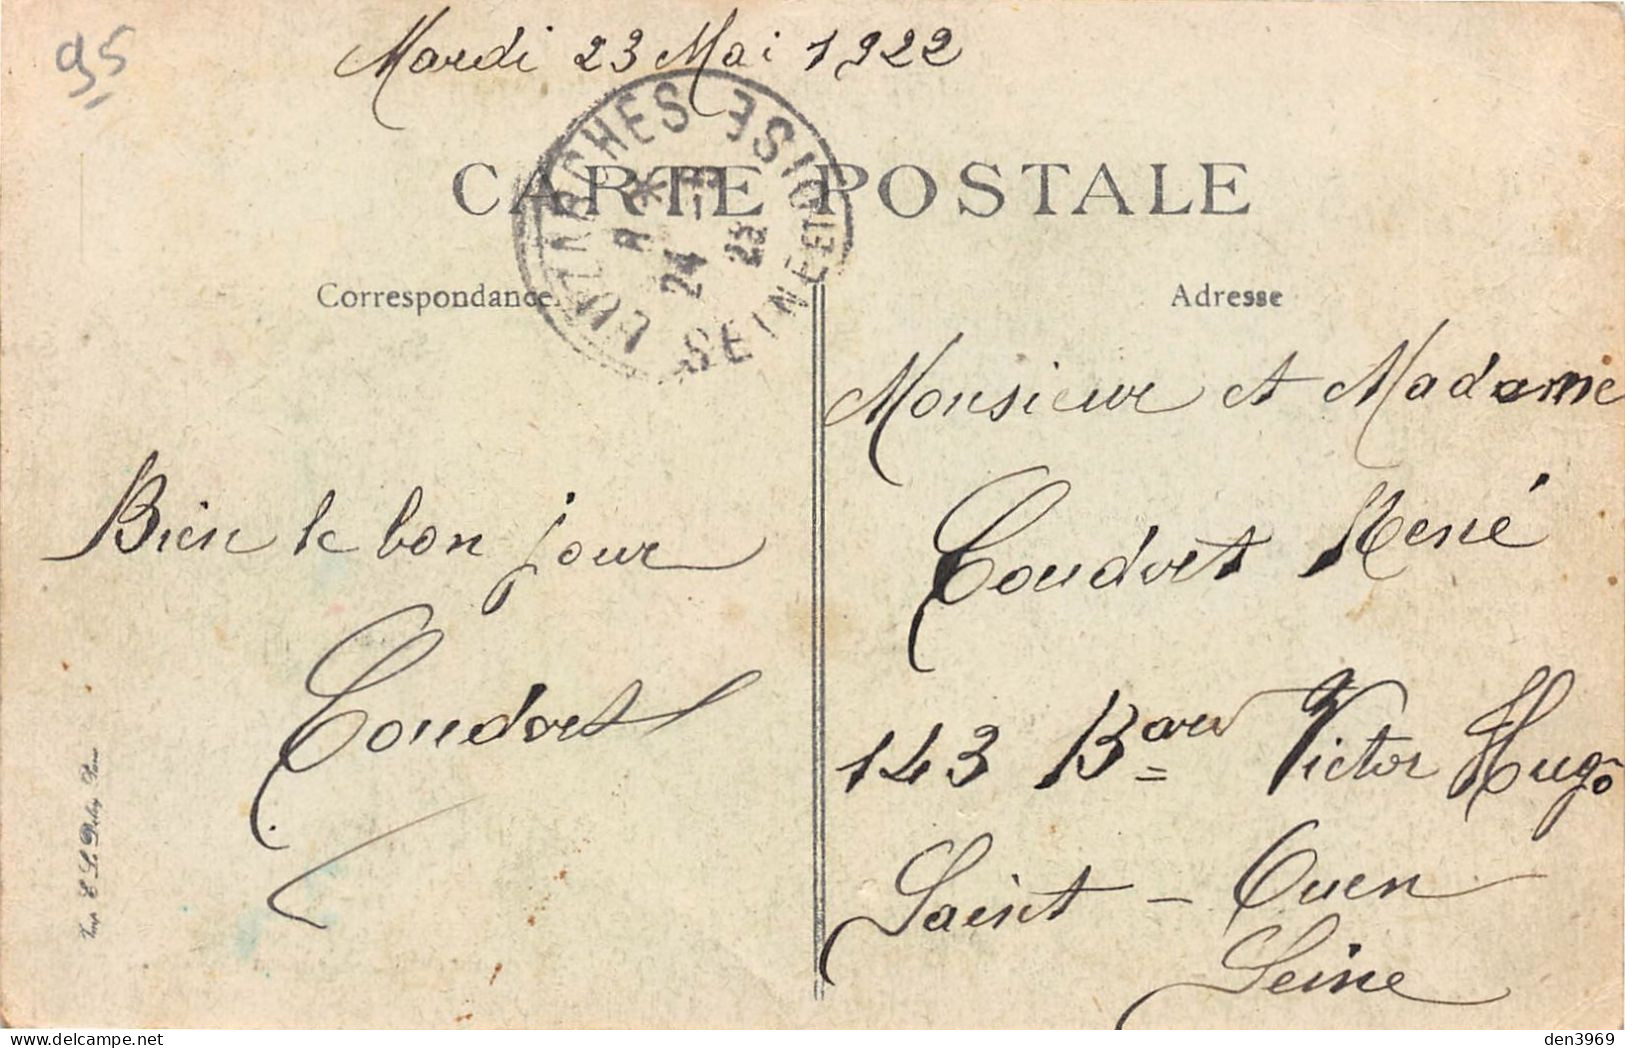 95
Mardi 23 Mai 1922
LUZARCHES SEINE ET OISE
24 - 5
22
CARTE POSTALE
Correspondance.
Adresse
Monsieur et Madame
Coudret René
143 Bard Victor Hugo
Saint - Ouen
Seine
Bien le bon jour
Coudret
Imp. E. L. Deley, Paris
den3969